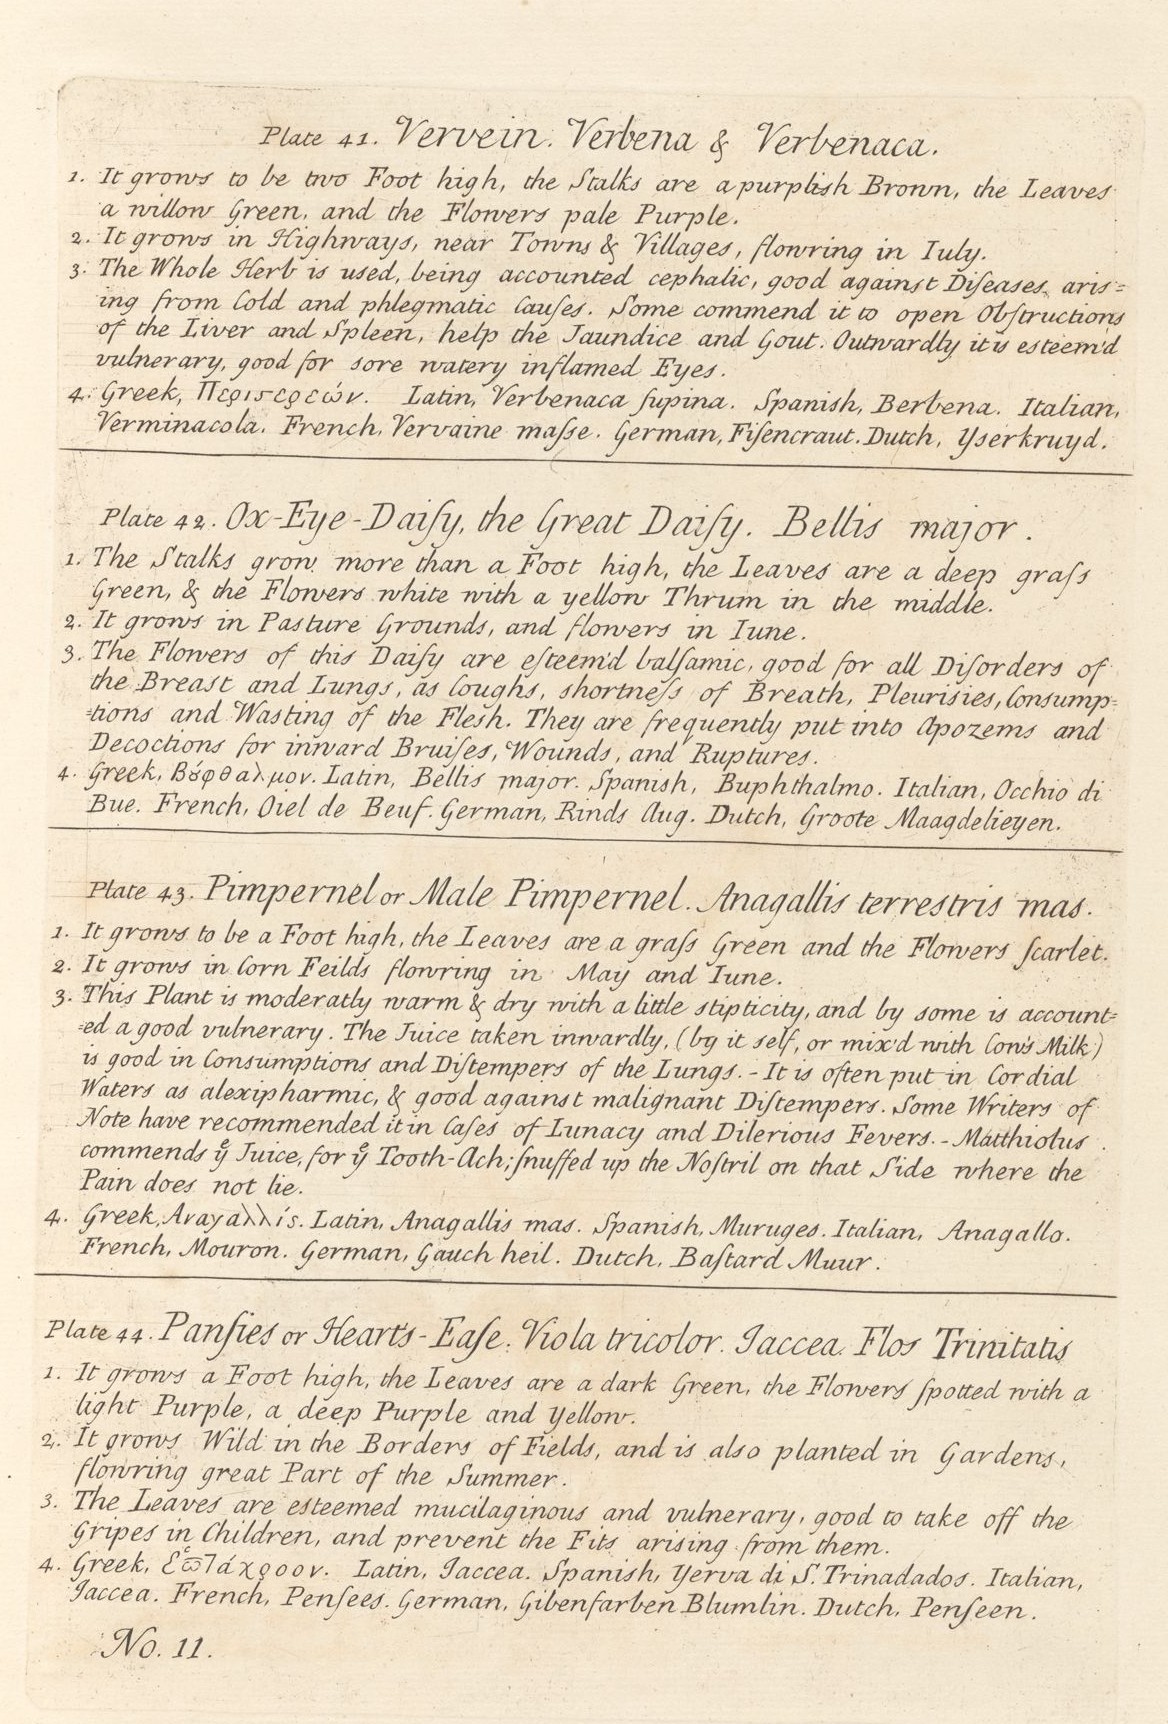 Plate 41. Vervein. Verbena & Verbenaca.
1. It grows to be two Foot high, the Stalks are a purplish Brown, the Leaves
a willow Green, and the Flowers pale Purple.
2. It grows in Highways, near Towns & Villages, flowring in Iuly.
3. The Whole Herb is used, being accounted cephalic, good against Diſeases aris=
ing from Cold and phlegmatic Cauſes. Some commend it to open Obſtructions
of the Liver and Spleen, help the Jaundice and Gout. Outwardly it is esteem'd
vulnerary, good for sore watery inflamed Eyes.
4. Greek, Περιστερεών. Latin, Verbenaca ſupina. Spanish, Berbena. Italian,
Verminacola. French, Vervaine maſse. German, Fiſencraut. Dutch, Yserkruyd.
Plate 42. Ox-Eye-Daiſy, the Great Daiſy. Bellis major.
1. The Stalks grow more than a Foot high, the Leaves are a deep graſs
Green, & the Flowers white with a yellow Thrum in the middle.
2. It grows in Pasture Grounds, and flowers in Iune.
3. The Flowers of this Daiſy are eſteem'd balſamic, good for all Diſorders of
the Breast and Lungs, as Coughs, shortneſs of Breath, Pleurisies, Consump=
=tions and Wasting of the Flesh. They are frequently put into Apozems and
Decoctions for inward Bruiſes, Wounds, and Ruptures.
4. Greek, Βόφθαλμον. Latin, Bellis major. Spanish, Buphthalmo. Italian, Occhio di
Bue. French, Oiel de Beuf. German, Rinds Aug. Dutch, Groote Maagdelieyen.
Plate 43. Pimpernel or Male Pimpernel. Anagallis terrestris mas.
1. It grows to be a Foot high, the Leaves are a graſs Green and the Flowers ſcarlet.
2. It grows in Corn Feilds flowring in May and Iune.
3. This Plant is moderatly warm & dry with a little stipticity, and by some is account=
=ed a good vulnerary. The Juice taken inwardly, (by it self, or mix'd with Cow's Milk)
is good in Consumptions and Diſtempers of the Lungs. - It is often put in Cordial
Waters as alexipharmic, & good against malignant Diſtempers. Some Writers of
Note have recommended it in Caſes of Lunacy and Dilerious Fevers. - Matthiolus
commends yͤ Juice, for yͤ Tooth-Ach; ſnuffed up the Noſtril on that Side where the
Pain does not lie.
4. Greek, Αναγαλλίς. Latin, Anagallis mas. Spanish, Muruges. Italian, Anagallo.
French, Mouron. German, Gauch heil. Dutch, Baſtard Muur.
Plate 44. Panſies or Heart's-Eaſe. Viola tricolor. Jaccea. Flos Trinitatis
1. It grows a Foot high, the Leaves are a dark Green, the Flowers ſpotted with a
light Purple, a deep Purple and Yellow.
2. It grows Wild in the Borders of Fields, and is also planted in Gardens,
flowring great Part of the Summer.
3. The Leaves are esteemed mucilaginous and vulnerary, good to take off the
Gripes in Children, and prevent the Fits arising from them.
4. Greek, Latin, Jaccea. Spanish, Yerva di S. Trinadados. Italian,
Jaccea. French, Penſees. German, Gibenfarben Blumlin. Dutch, Penſeen.
No. 11.